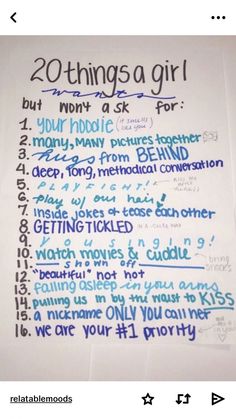 20 things a girl
wants
but won't ask for:
1. your hoodie (it smells like you)
2. many, MANY pictures together
3. hugs from BEHIND
4. deep, long, methodical conversation
5. PLAYFIGHT!
6. play w/ our hair!
7. inside jokes & tease each other
8. GETTING TICKLED
9. you singing!
10. watch movies & cuddle bring snacks
11. shown off
12. "beautiful" not hot
13. falling asleep in your arms
14. pulling us in by the waist to KISS
15. a nickname ONLY YOU call her
16. we are your #1 priority
relatablemoods